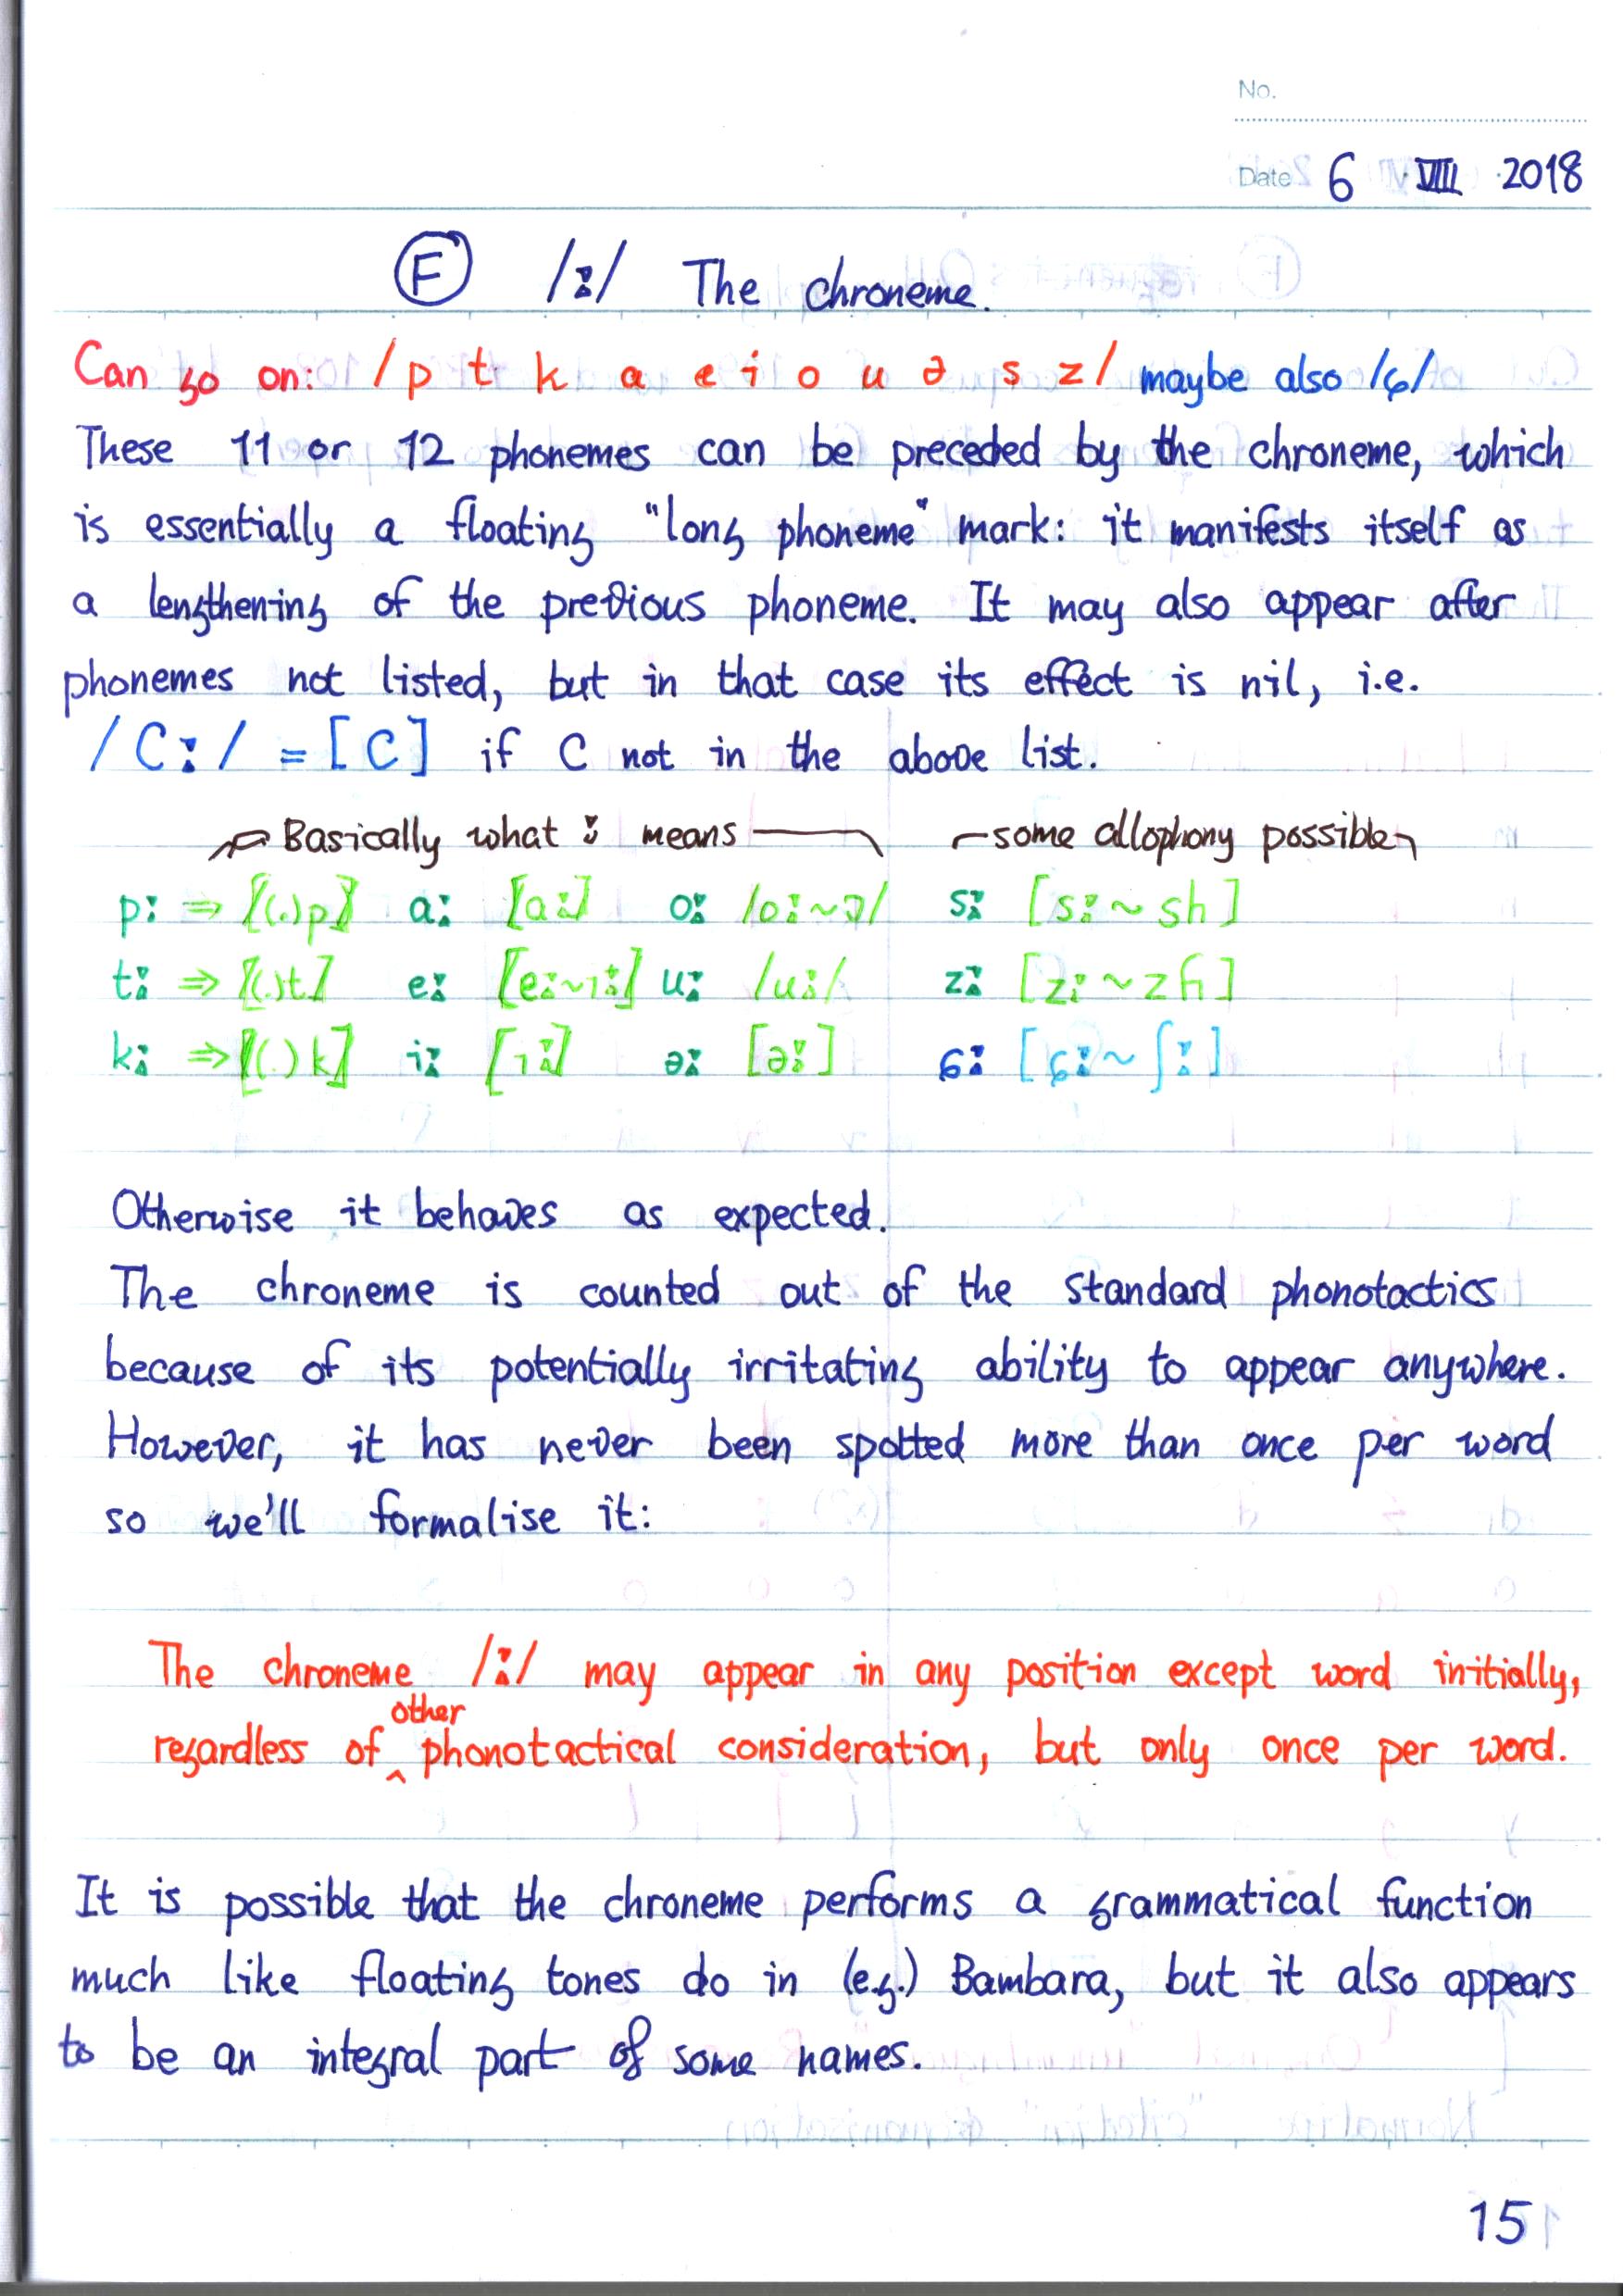 No.
Date 6 VIII 2018
F /ː/ The chroneme.
Can go on: /p t k a e i o u ə s z/ maybe also /ɕ/
These 11 or 12 phonemes can be preceded by the chroneme, which
is essentially a floating "long phoneme" mark: it manifests itself as
a lengthening of the previous phoneme. It may also appear after
phonemes not listed, but in that case its effect is nil, i.e.
/Cː/ = [C] if C not in the above list.
Basically what ː means some allophony possible
pː ⇒ [(.)p] aː [aː] oː /oː~ɔ/ sː [sː~sh]
tː ⇒ [(.)t] eː [eː~ıː] uː /uː/ zː [zː~zɦ]
kː ⇒ [(.)k] iː [ıː] əː [əː] ɕː [ɕː~ʃː]
Otherwise it behaves as expected.
The chroneme is counted out of the standard phonotactics
because of its potentially irritating ability to appear anywhere.
However, it has never been spotted more than once per word
so we'll formalise it:
The chroneme /ː/ may appear in any position except word initially,
regardless of ^other phonotactical consideration, but only once per word.
It is possible that the chroneme performs a grammatical function
much like floating tones do in (e.g.) Bambara, but it also appears
to be an integral part of some names.
15